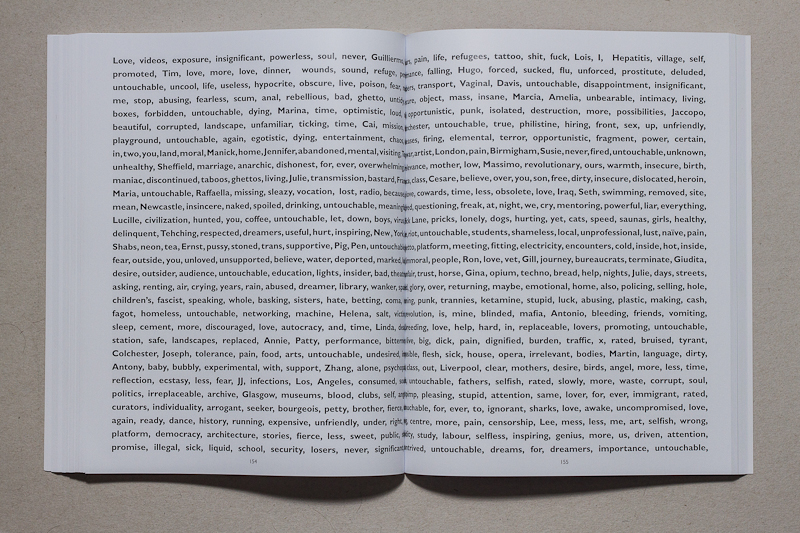 Love, videos, exposure, insignificant, powerless, soul, never,
promoted, Tim, love, more, love, dinner, wounds, sound, refuge,
untouchable, uncool, life, useless, hypocrite, obscure, live, poison, fear,
me, stop, abusing, fearless, scum, anal, rebellious, bad, ghetto,
boxes, forbidden, untouchable, dying, Marina, time, optimistic, loud,
beautiful, corrupted, landscape, unfamiliar, ticking, time, Cai,
playground, untouchable, again, egotistic, dying, entertainment,
in, two, you, land, moral, Manick, home, Jennifer, abandoned, mental, visiting,
unhealthy, Sheffield, marriage, anarchic, dishonest, for, ever,
maniac, discontinued, taboos, ghettos, living, Julie, transmission, bastard,
Maria, untouchable, Raffaella, missing, sleazy, vocation, lost, radio,
mean, Newcastle, insincere, naked, spoiled, drinking, untouchable,
Lucille, civilization, hunted, you, coffee, untouchable, let, down, boys,
delinquent, Tehching, respected, dreamers, useful, hurt, inspiring, New,
Shabs, neon, tea, Ernst, pussy, stoned, trans, supportive, Pig, Pen,
fear, outside, you, unloved, unsupported, believe, water, deported, marked,
desire, outsider, audience, untouchable, education, lights, insider, bad,
asking, renting, air, crying, years, rain, abused, dreamer, library, wanker,
children's, fascist, speaking, whole, basking, sisters, hate, betting, coma,
fagot, homeless, untouchable, networking, machine, Helena, salt,
sleep, cement, more, discouraged, love, autocracy, and, time, Linda,
station, safe, landscapes, replaced, Annie, Patty, performance,
Colchester, Joseph, tolerance, pain, food, arts, untouchable, undesired,
Antony, baby, bubbly, experimental, with, support, Zhang, alone,
reflection, ecstasy, less, fear, JJ, infections, Los, Angeles, consumed,
politics, irreplaceable, archive, Glasgow, museums, blood, clubs, self,
curators, individuality, arrogant, seeker, bourgeois, petty, brother, fierce,
again, ready, dance, history, running, expensive, unfriendly, under, right,
platform, democracy, architecture, stories, fierce, less, sweet, public,
promise, illegal, sick, liquid, school, security, losers, never,
154
pain, life, refugees, tattoo, shit, fuck, Lois, I, Hepatitis, village, self,
falling, Hugo, forced, sucked, flu, unforced, prostitute, deluded,
transport, Vaginal, Davis, untouchable, disappointment, insignificant,
object, mass, insane, Marcia, Amelia, unbearable, intimacy, living,
opportunistic, punk, isolated, destruction, more, possibilities, Jaccopo,
untouchable, true, philistine, hiring, front, sex, up, unfriendly,
firing, elemental, terror, opportunistic, fragment, power, certain,
artist, London, pain, Birmigham, Susie, never, fired, untouchable, unknown,
mother, low, Massimo, revolutionary, ours, warmth, insecure, birth,
class, Cesare, believe, over, you, son, free, dirty, insecure, dislocated, heroin,
cowards, time, less, obsolete, love, Iraq, Seth, swimming, removed, site,
questioning, freak, at, night, we, cry, mentoring, powerful, liar, everything,
Lane, pricks, lonely, dogs, hurting, yet, cats, speed, saunas, girls, healthy,
riot, untouchable, students, shameless, local, unprofessional, lust, naïve, pain,
platform, meeting, fitting, electricity, encounters, cold, inside, hot, inside,
people, Ron, love, vet, Gill, journey, bureaucrats, terminate, Giudita,
trust, horse, Gina, opium, techno, bread, help, nights, Julie, days, streets,
glory, over, returning, maybe, emotional, home, also, policing, selling, hole,
punk, trannies, ketamine, stupid, luck, abusing, plastic, making, cash,
is, mine, blinded, mafia, Antonio, bleeding, friends, vomiting,
love, help, hard, in, replaceable, lovers, promoting, untouchable,
big, dick, pain, dignified, burden, traffic, x, rated, bruised, tyrant,
flesh, sick, house, opera, irrelevant, bodies, Martin, language, dirty,
class, out, Liverpool, clear, mothers, desire, birds, angel, more, less, time,
untouchable, fathers, selfish, rated, slowly, more, waste, corrupt, soul,
pleasing, stupid, attention, same, lover, for, ever, immigrant, rated,
for, ever, to, ignorant, sharks, love, awake, uncompromised, love,
centre, more, pain, censorship, Lee, mess, less, me, art, selfish, wrong,
study, labour, selfless, inspiring, genius, more, us, driven, attention,
untouchable, dreams, for, dreamers, importance, untouchable,
155